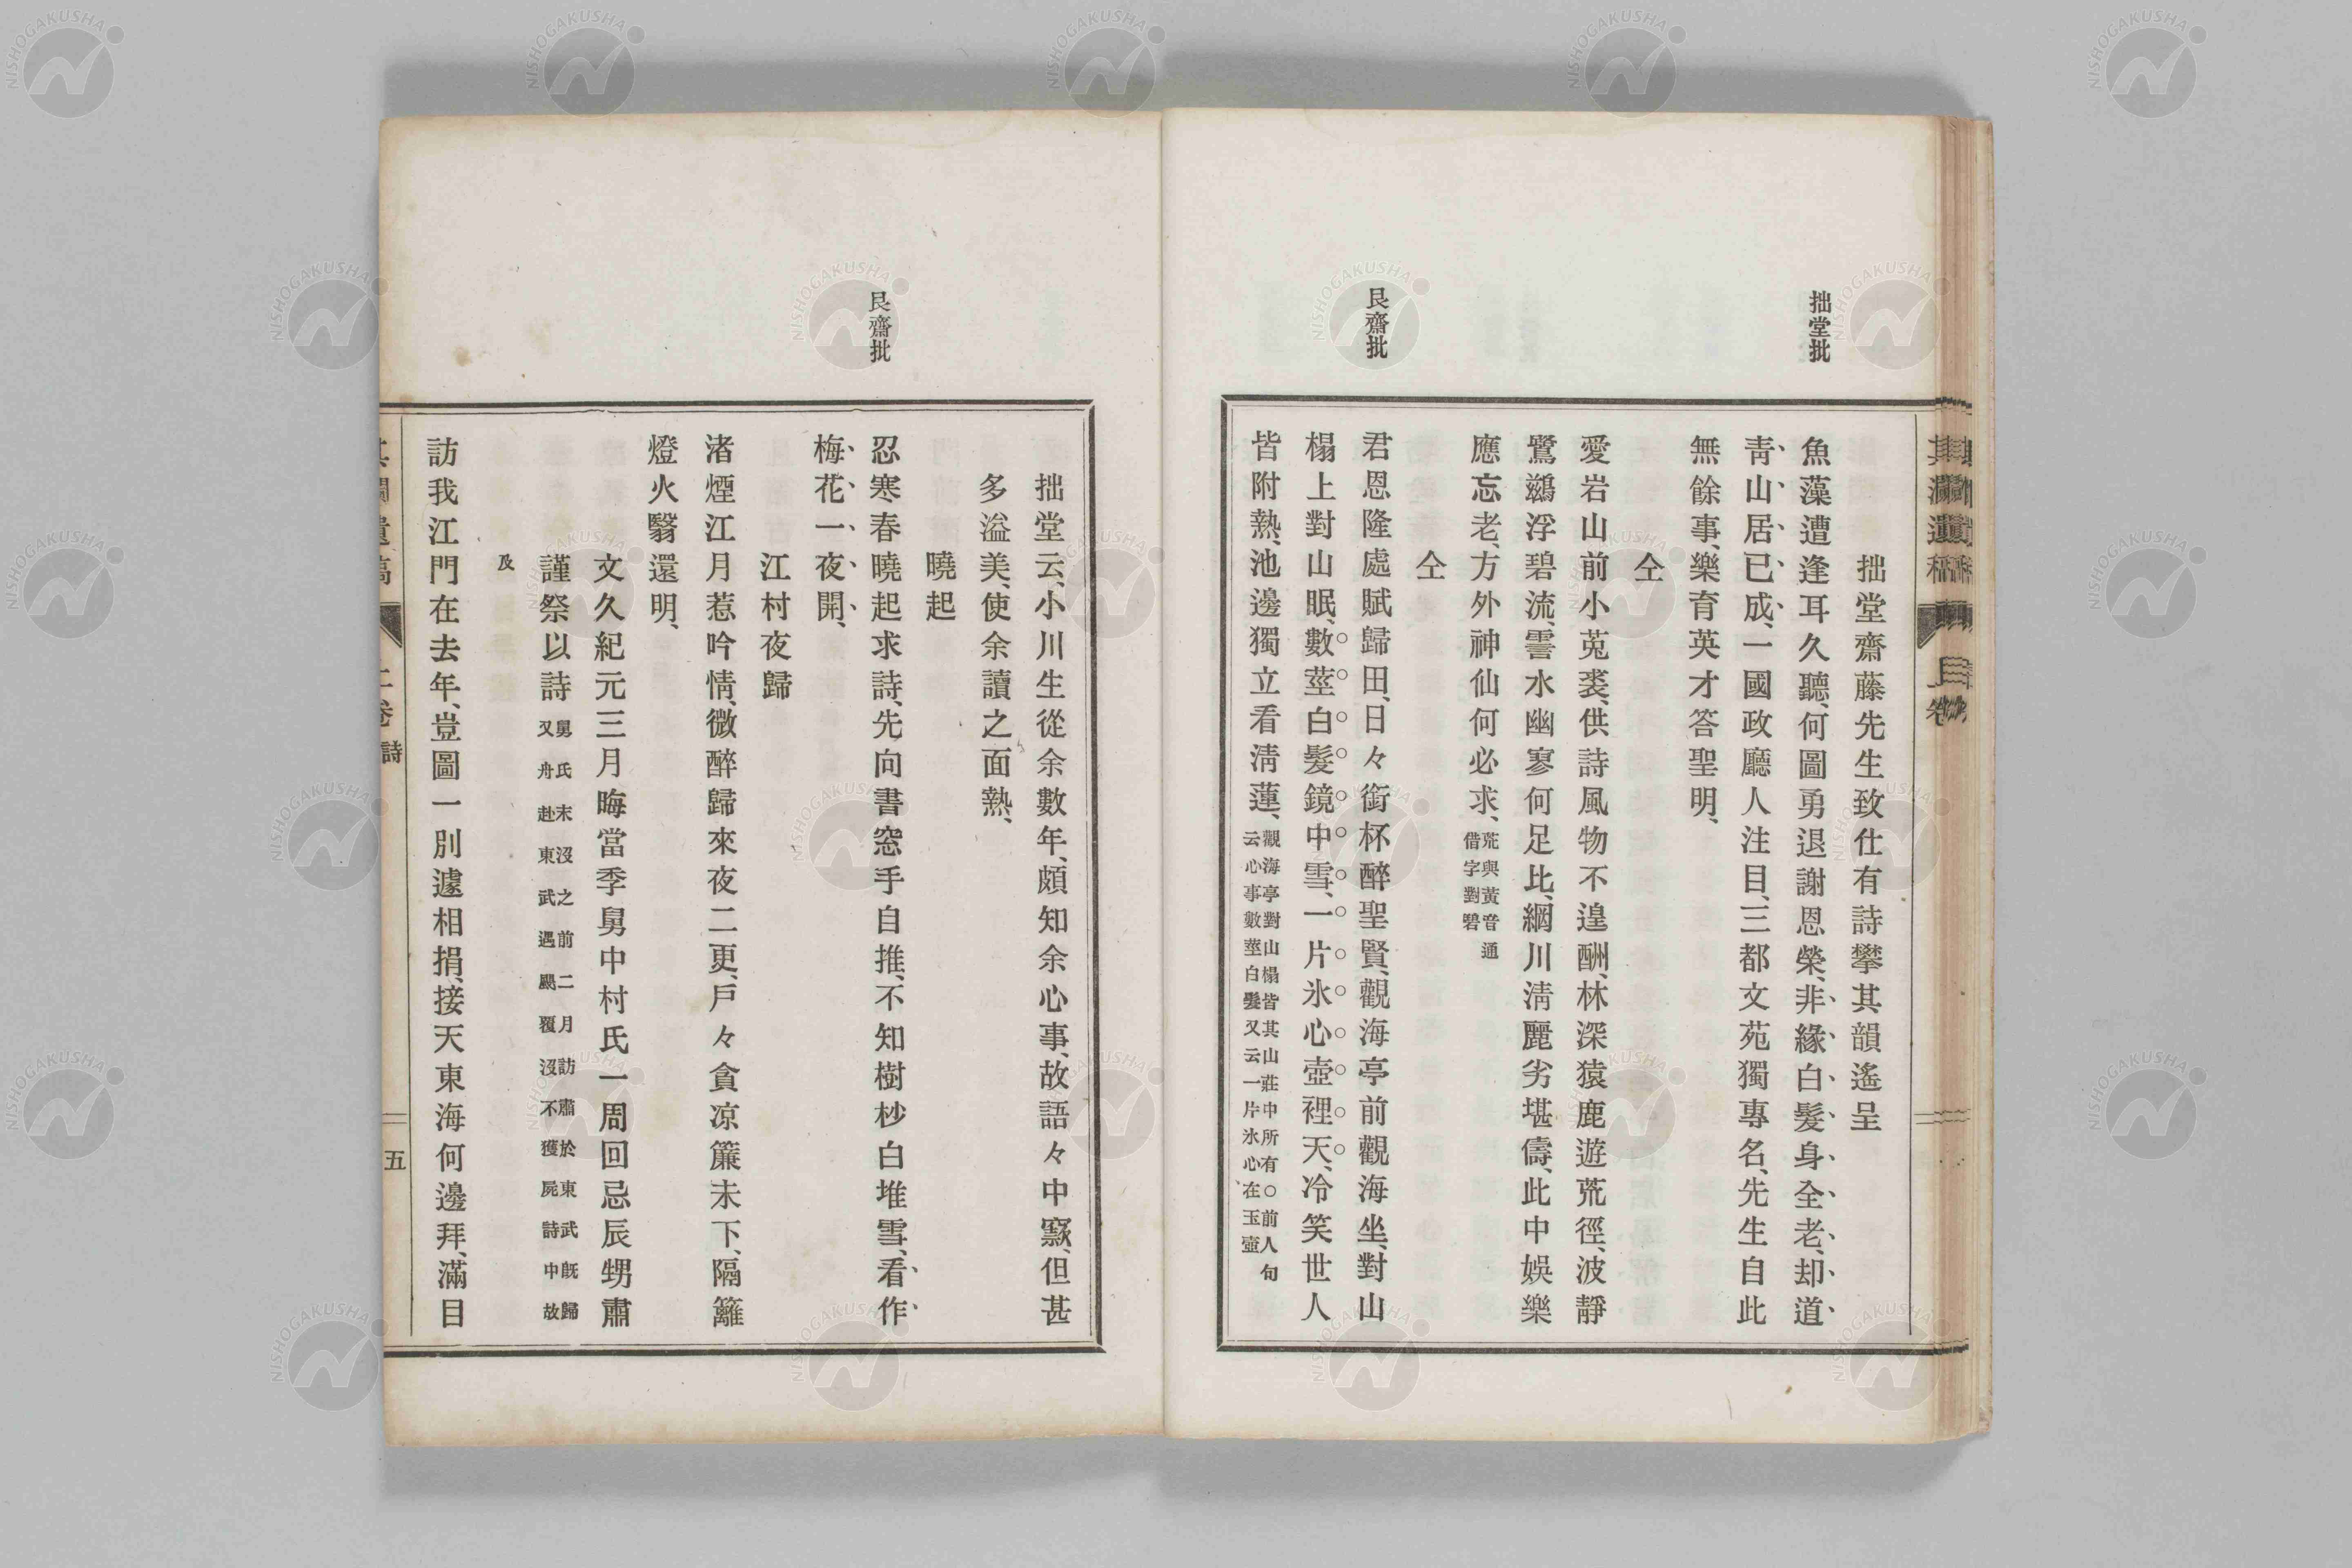 拙堂批
拙堂齋藤先生致仕有詩攀其韻遙呈
魚藻遭逢耳久聽、何圖勇退謝恩榮、非緣白髮身全老、却道
青山居已成、一國政廳人注目、三都文苑獨專名、先生自此
無餘事、樂育英才答聖明、
仝
愛岩山前小菟裘、供詩風物不遑酬、林深猿鹿遊荒徑、波靜
鷺鷀浮碧流、霅水幽寥何足比、網川淸麗劣堪儔、此中娛樂
應忘老、方外神仙何必求、荒與黃音通
借字對碧
仝
艮齋批
君恩隆處賦歸田、日々銜杯醉聖賢、觀海亭前觀海坐、對山
榻上對山眠、數莖白髮鏡中雪、一片氷心壺裡天、冷笑世人
皆附熱、池邊獨立看淸蓮、觀海亭對山榻皆其山莊中所有○前人句
云心事數莖白髮又云一片氷心在玉壺
拙堂云、小川生從余數年、頗知余心事、故語々中窾、但甚
多溢美、使余讀之面熱、
曉起
艮齋批
忍寒春曉起求詩、先向書窓手自推、不知樹杪白堆雪、看作
梅花一夜開、
江村夜歸
渚煙江月惹吟情、微醉歸來夜二更、戶々貪凉簾未下、隔籬
燈火翳還明、
文久紀元三月晦當季舅中村氏一周回忌辰甥肅
謹祭以詩 舅氏末沒之前二月訪肅於東武旣歸
又舟赴東武遇颶覆沒不獲屍詩中故
及
訪我江門在去年、豈圖一別遽相捐、接天東海何邊拜、滿目
五
NISHOGAKUSHA